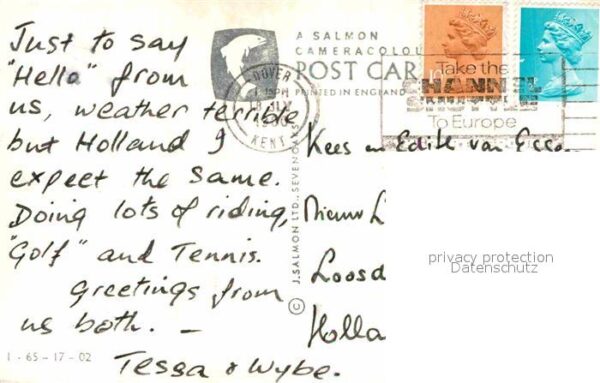 Just to say
"Hello" from
us, weather terrible
but Holland I
expect the same.
Doing lots of riding,
"Golf" and Tennis.
greetings from
us both. —
Tessa & Wybe.
1 - 65 - 17 - 02
A SALMON
CAMERACOLOU
POST CAR
PRINTED IN ENGLAND
© J. SALMON LTD., SEVENOAKS
DOVER
KENT
Take the
CHANNEL
SHUTTLE
To Europe
Kees en Edith van Esso
Nieuw L
Loosd
Holla
privacy protection
Datenschutz